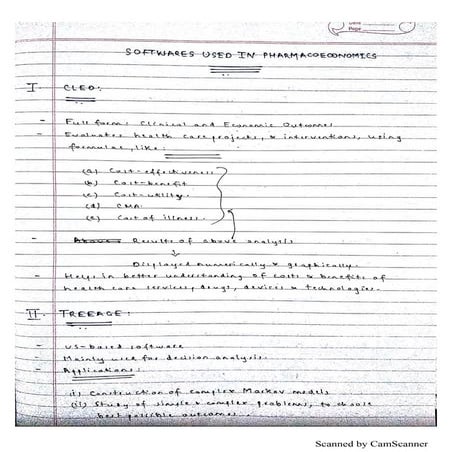 Date
Page
SOFTWARES USED IN PHARMACOECONOMICS
I. CLEO:
- Full form: Clinical and Economic Outcomes
- Evaluates health care projects, & interventions, using
formulas, like:
(a) Cost-effectiveness
(b) Cost-benefit
(c) Cost-utility
(d) CMA
(e) Cost of illness.
- Above Results of above analysis
↓
Displayed numerically & graphically.
- Helps in better understanding of costs & benefits of
health care services, drugs, devices & technologies.
II. TREEAGE:
- US-based software
- Mainly used for decision analysis.
- Applications:
(i) Construction of complex Markov models
(ii) Study of simple & complex problems, to choose
best possible outcomes.
Scanned by CamScanner